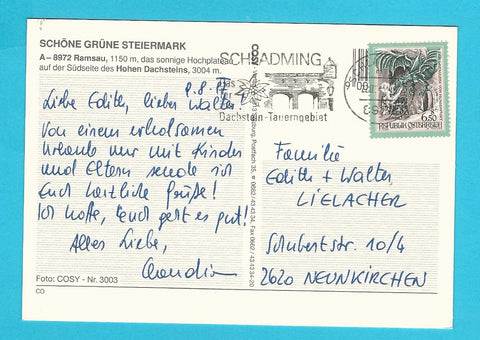 SCHÖNE GRÜNE STEIERMARK
A – 8972 Ramsau, 1150 m, das sonnige Hochplateau
auf der Südseite des Hohen Dachsteins, 3004 m.
9.8.
Liebe Edith, lieber Walter
Von einem erholsamen
Urlaub nur mit Kinder
und Eltern sende ich
Euch herzliche Grüße!
Ich hoffe, Euch geht es gut!
Alles Liebe,
Claudia
Foto: COSY - Nr. 3003
CO
SCHLADMING
das
der
Dachstein-Tauerngebiet
6.50
REPUBLIK ÖSTERREICH
Postfach 35, 0662/43 43 34, Fax 0662/43 43 34-20
Familie
Edith + Walter
LIELACHER
Schubertstr. 10/4
2620 NEUNKIRCHEN